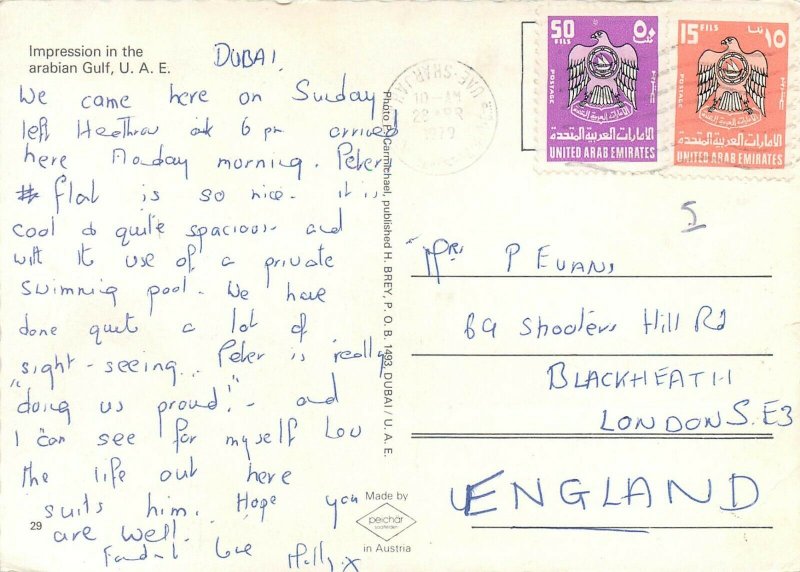 Impression in the
arabian Gulf, U. A. E.
DUBAI.
We came here on Sunday
left Heathrow at 6 pm arrived
here Monday morning. Peter
flat is so nice. it is
cool & quite spacious and
with the use of a private
swimming pool. We have
done quite a lot of
sight-seeing.. Peter is really
"doing us proud!" - and
I can see for myself how
the life out here
suits him. Hope you
are well.
Fondest love Molly x
29
Made by
peichär
in Austria
Photo R. Carmichael, published H. BREY, P. O. B. 1493, DUBAI / U. A. E.
UAE-SHARJAH
10-AM
1979
50
FILS
٥٠
POSTAGE
الامارات العربية المتحدة
UNITED ARAB EMIRATES
15
FILS
١٥
POSTAGE
الامارات العربية المتحدة
UNITED ARAB EMIRATES
5
Mrs P EVANS
69 Shooters Hill Rd
BLACKHEATH
LONDON S.E3
ENGLAND